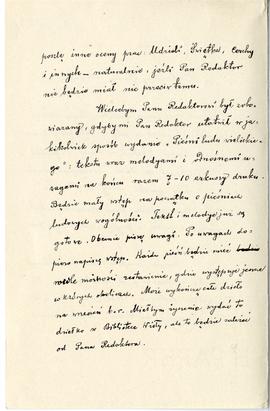 poszlę inne oceny prac Udzieli, Świętka, Cerchy
i innych – naturalnie, jeśli Pan Redaktor
nie będzie miał nic przeciw temu.
Wielcebym Panu Redaktorowi był zobo-
wiązany, gdybym Pan Redaktor ułatwił w ja-
kikolwiek sposób wydanie „Pieśni ludu
go": tekstu wraz melodyami i u-
wagami na końcu razem 7–10 arkuszy druku.
Będzie mały wstęp na początku o pieśniach
ludowych wogólności. Tekst i melodye już są
gotowe. Obecnie piszę uwagi. Po uwagach do-
piero napiszę wstęp. Każda pieśń będzie mieć
wedle możności zestawienie, gdzie występuje jeszcze
w których okolicach. Może wykończę całe dzieło
na wrzesień b.r. Miałbym życzenie wydać to
dziełko w Bibliotece Wisły, ale to będzie zależeć
od Pana Redaktora.